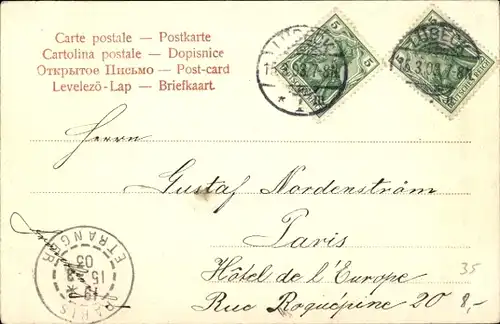 Carte postale — Postkarte
Cartolina postale — Dopisnice
Открытое Письмо — Post-card
Levelező-Lap — Briefkaart.
5
5
LÜBECK
LÜBECK
7-8N.
1
Herrn
Gustaf Nordenström
Paris
Hôtel de l'Europe
Rue Roquépine 20
35
8,-
PARIS
ETRANGER
15
03